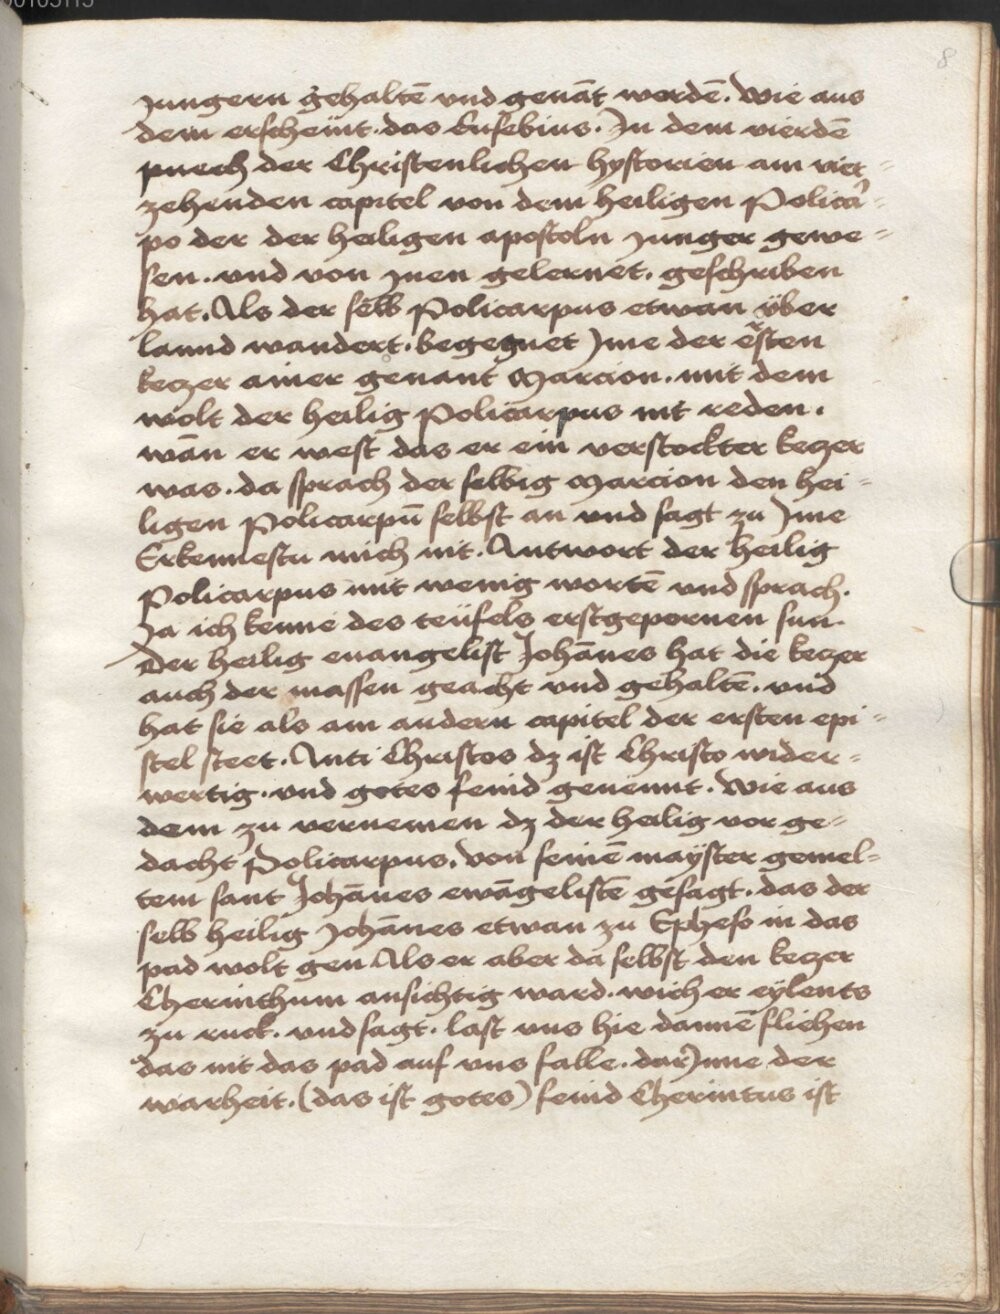 8
Jungern gehaltē vnd genāt werdē. Wie aus
dem erscheint. das Eusebius. In dem vierdē
puech der Christenlichen hystorien am vier-
zehenden capitel von dem heiligen Policar-
po der der heiligen apostoln Junger gewe-
sen. vnd von Inen gelernet. geschriben
hat. Als der selb Policarpus etwan über
lannd wandert. begegnet Ime der ersten
keczer ainer genant Marcion. mit dem
wolt der heilig Policarpus nit reden.
wān er west das er ein verstockter keczer
was. da sprach der selbig Marcion den hei-
ligen Policarpū selbst an vnd sagt zu Ime
Erkennestu mich nit. Antwort der heilig
Policarpus mit wenig wortē vnd sprach.
Ja ich kenne des teüfels erstgepornen sun.
Der heilig euangelist Johānes hat die keczer
auch der massen geacht vnd gehaltē. vnd
hat sie als am andern capitel der ersten epi-
stel steet. Anti Christos dz ist Christo wider-
wertig. vnd gotes feind genennt. Wie aus
dem zu vernemen dz der heilig vor ge-
dacht Policarpus. von seinē mayster gemel-
tem sant Johānes ewāgelistē gesagt. das der
selb heilig Johānes etwan zu Epheso in das
pad wolt gen Als er aber da selbst den keczer
Cherinthum ansichtig ward. wich er eylents
zu ruck. vnd sagt. last vns hie dannē fliehen
das nit das pad auf vns falle. dar Inne der
warheit. (das ist gotes) feind Cherintus ist